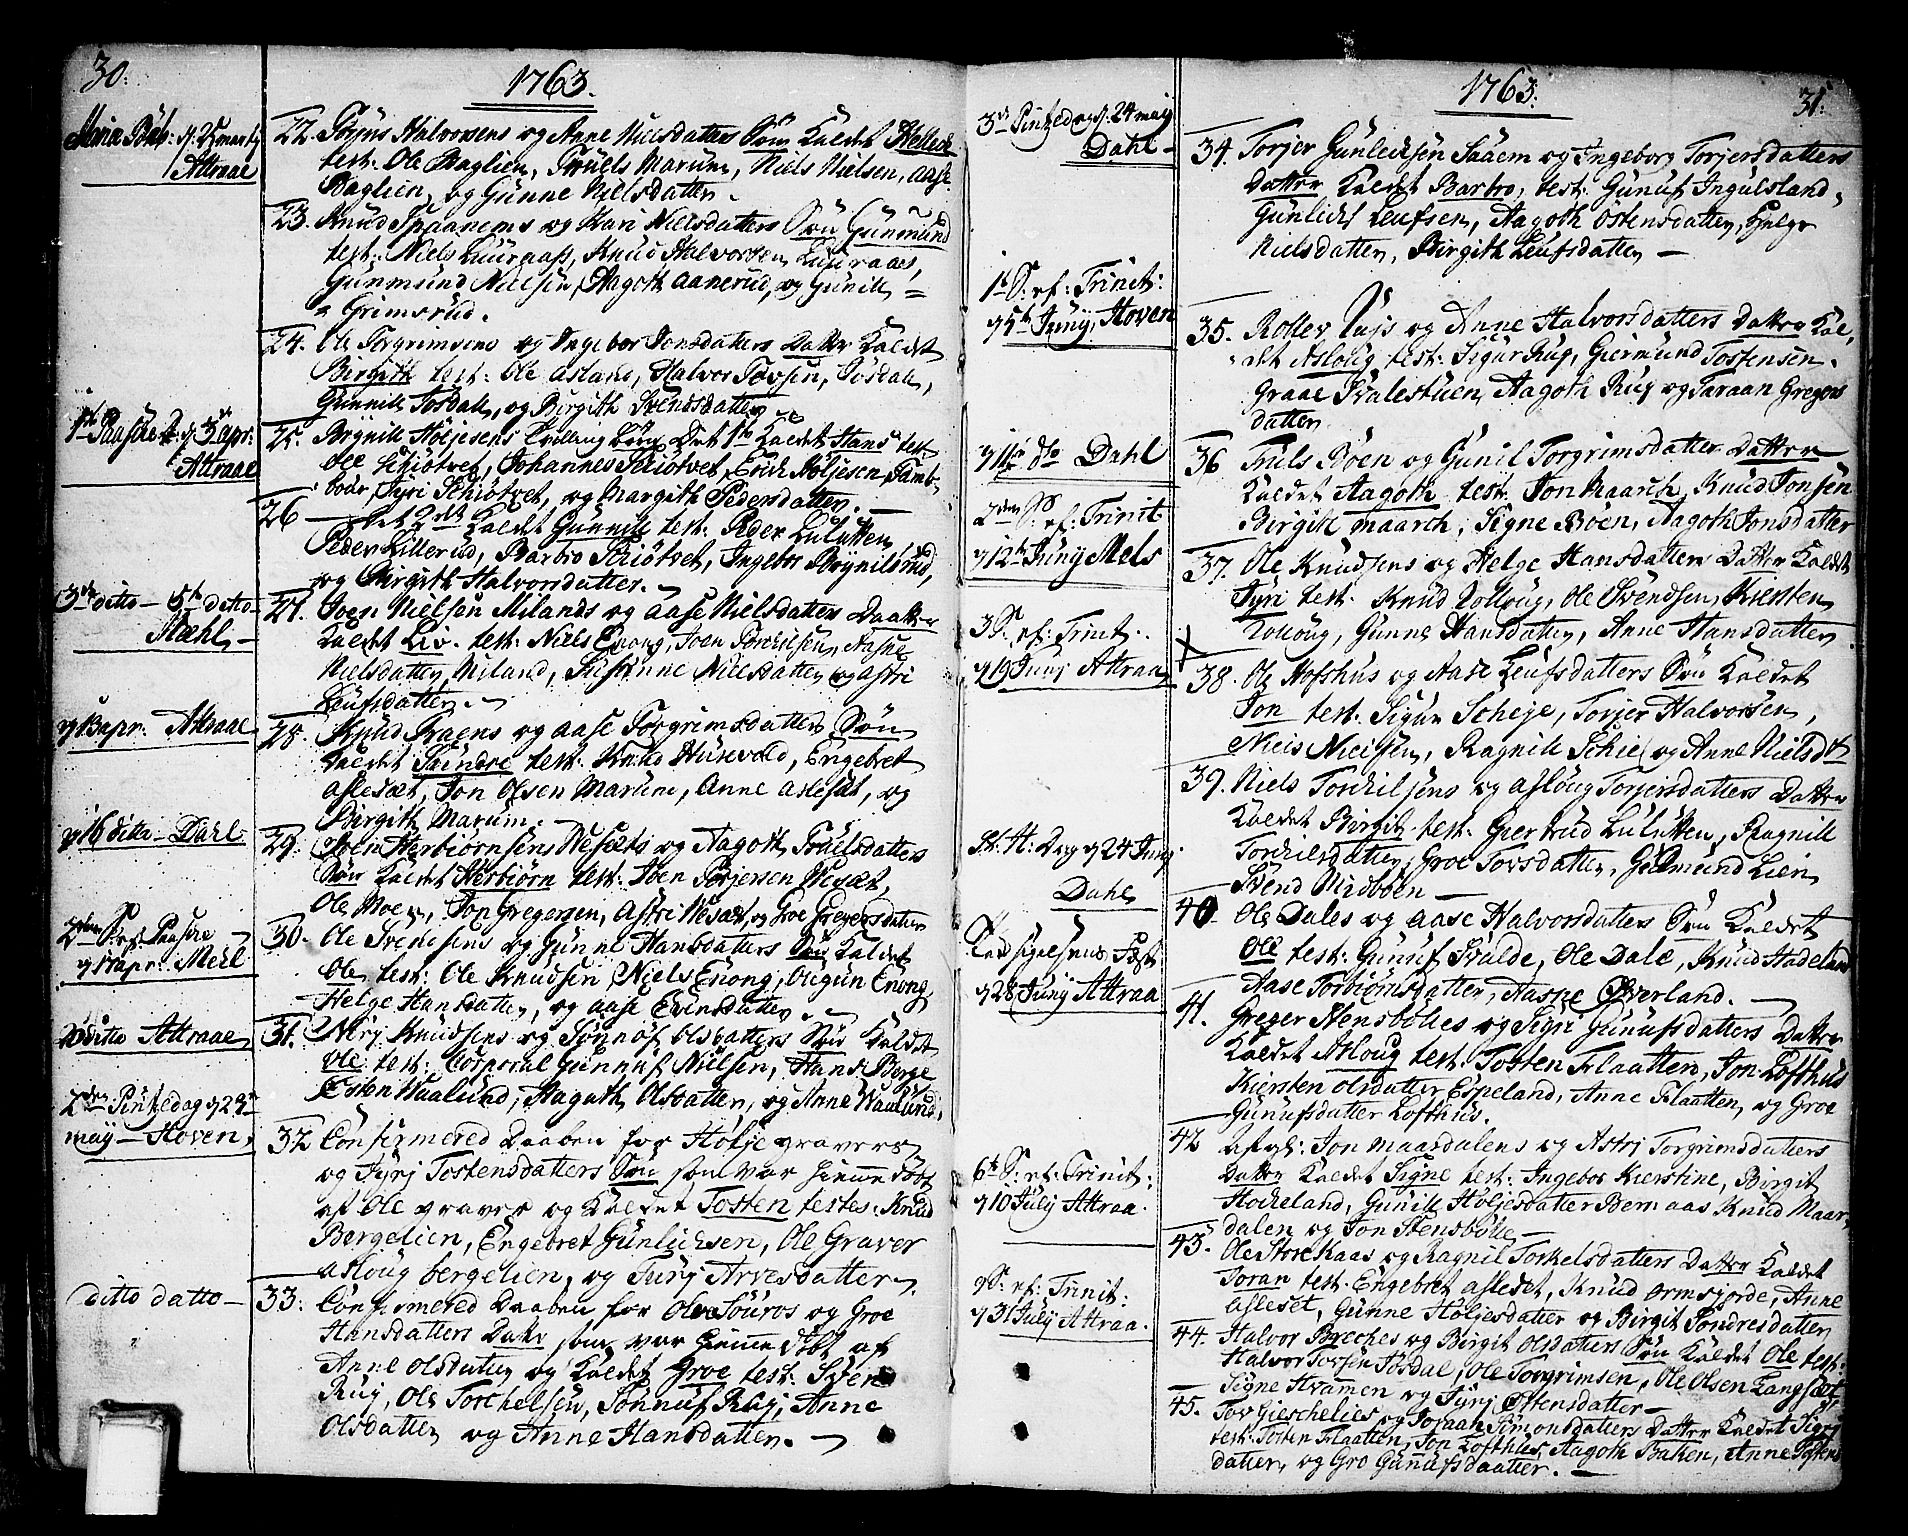 30.
1763.
Mariæ Beb: d. 25 marty
Attraae
22. Torjus Halvorsens og Anne Nielsdatters Søn Kaldet
test: Ole Baglien, Truels Marum, Niels Nielsen, Aase
Baglien, og Gunne Nielsdatter.
23. Knud Spaanems og Kari Nielsdatters Søn Gunmund
test: Niels Luuraas, Knud Halvorsen Luuraas,
Gunmund Nielsen, Aagoth Aanerud, og Gunill
Grimsrud.
24. Ole Torgrimsens og Ingebor Jonsdatters Datter Kaldet
Birgith test: Ole Asland, Halvor Tovsen, Tosdall,
Gunnill Tosdall, og Birgith Svendsdatter
1ste Paaske d. 3de apr:
Attraae
25. Brynill Høljesens Tvilling børn Det 1te Kaldet Hans test
Ole Schiøtvet, Johannes Schiøtvet, Erich Høljesen, Tamb-
bour, Jyri Schiøtvet, og Margith Pedersdatter.
26 — Det 2det Kaldet Gunnill test: Peder Lulutten
Peder Lillerud, Barbro Schiøtvet, Ingebor Brynilsrud,
og Birgith Halvorsdatter.
3de ditto — 5t ditto
Mæhl
27. Joen Nielsen Milands og Aase Nielsdatters Daatter
Kaldet Liv. test: Niels Enong, Joen Torchilsen, Aasne
Nielsdatter Miland, Susanne Nielsdatter og Astri
Leufsdatter.
d. 13 apr. Attraae
28. Knud Traens og Aase Torgrimsdatters Søn
Kaldet Søndre test: Knud Husevold, Engebret
Aflesæt, Jon Olsen Marum, Anne Aslesæt, og
Birgith Marum.
d. 16 ditto — Dahl
29. Joen Herbiørnsens Wesæts og Aagoth Truelsdatters
Søn Kaldet Herbiørn test: Joen Torjersen Wesæt,
Ole Moen, Jon Gregersen, Astri Wesæt, og Groe Gregersdatter
2den S. ef: Paaske
d. 17 apr: Meel
30. Ole Svendsens og Gunne Hansdatters Søn Kaldet
Ole, test: Ole Knudsen, Niels Enong, Olegun Enong,
Helge Hansdatter, og Aase Evensdatter.
ditto Attraae
31. Nirj Knudsens og Sønnøf Olsdatters Søn Kaldet
Ole test: Corporal Gunnuf Nielsen, Hans Berge
Esten Waalund, Aagoth Olsdatter, og Anne Waalund.
2den Pintzedag d. 23
may — Hoven.
32 Confirmered Daaben for Hølje gravers
og Jyrj Tostensdatters Søn som var hiemmedøbt
af Ole graver og Kaldet Tosten testes: Knud
Bergelien, Engebret Gunlichsen, Ole Graver
Asloug bergelien, og Turj Arvesdatter.
ditto datto —
33. Confirmered Daaben for Ole Souros og Groe
Hansdatters Datter som var hiemmedøbt af
Anne Olsdatter og Kaldet Groe test: Sven
Rug, Ole Torchelsen, Sønnuf Rug, Anne
Olsdatter og Anne Hansdatter.
1763.
31.
3de Pintzedag d. 24 maij
Dahl
34. Torjer Gunlechsen Saaem og Ingeborg Torjersdatters
Datter Kaldet Barbro, test: Gunuf Ingulsland
Gunlech Leufsen, Aagoth Ostensdatter, Helge
Nielsdatter, Birgith Leufsdatter —
1te S. ef: Trinit:
d. 5te Juny, Hoven
35. Rollev og Anne Halvorsdatters Datter Kal-
det Asloug test: Sigur Rug, Giermund Tostensen
Graae Svalestuen, Aagoth Rug og Taraan Gregers
datter
d. 11te do Dahl
36 Truls Bøen og Gunil Torgrimsdatter Datter
Kaldet Aagoth test: Jon Maarch, Knud Jonsen
Birgit maarch, Signe Bøen, Aagoth Jonsdatter
2den S. ef: Trinit
d. 12te Juny Mels
37. Ole Knudsens og Helge Hansdatters Datter Kaldet
Jyri test: Knud Lolloug, Ole Svendsen, Kiersten
Lolloug, Gunne Hansdatter, Anne Hansdatter
3 S. ef: Trinit.
d. 19 Junj Attraa
38. Ole Hofshus og Aase Leufsdatters Søn Kaldet
Jon test: Sigur Scheje, Torjer Halvorsen,
Niels Nielsen, Ragnill Schie og Anne Nielsdt
39. Niels Torchilsens og Asloug Torjersdatters Datter
Kaldet Birgit test: Giertrud Lulutten, Ragnill
Torchelsdatter, Groe Tovsdatter, Gudmund Lien
Svend Midbøen —
St. H: Dag d. 24 Junj
Dahl
40. Ole Dales og Aase Halvorsdatters Søn Kaldet
Ole test: Gunuf Svalde, Ole Dale, Knud Hadeland
Aase Torbiørnsdatter, Aasne Øverland.
Tacksigelsens Fæst
d. 28 Juny Attraa
41. Greger Stensbølies og Sigri Gunufsdatters Datter
Kaldet Asloug test: Tosten Flaatten, Jon Lofthus
Kiersten Olsdatter Espeland, Anne Flaatten, og Groe
Gunufsdatter Lofthus.
42 Jon maardalens og Astrj Torgrimsdatters
Datter Kaldet Signe test: Ingebor Kierstine, Birgit
Hockeland, Gunill Høljesdatter Bernaas Knud Maar-
dalen og Jon Stensbølle
6te S. ef: Trinit:
d. 10 July Attraa.
43. Ole StoreKaas og Ragnil Torkelsdatters Datter Kaldet
Toran test. Engebret Asleset, Knud Ormsjorde, Anne
Asleset, Gunne Høljesdatter og Birgit Sondresdatter
9 S. ef: Trinit:
d. 31 July Attraa.
44. Halvor Breches og Birgit Olsdatters Søn Kaldet Ole test:
Halvor Tovsen Tosdal, Ole Torgrimsen, Ole Olsen Langsæt
Signe Hvammen og Jyrj Ostensdatter —
45. Tov Gieschelies og Joraan Simonsdatters Datter Kaldet Sigrj
test: Tosten Flaatten, Jon Lofthus, Aagoth Baken, Anne
datter, og Gro Gunufsdaatter. —